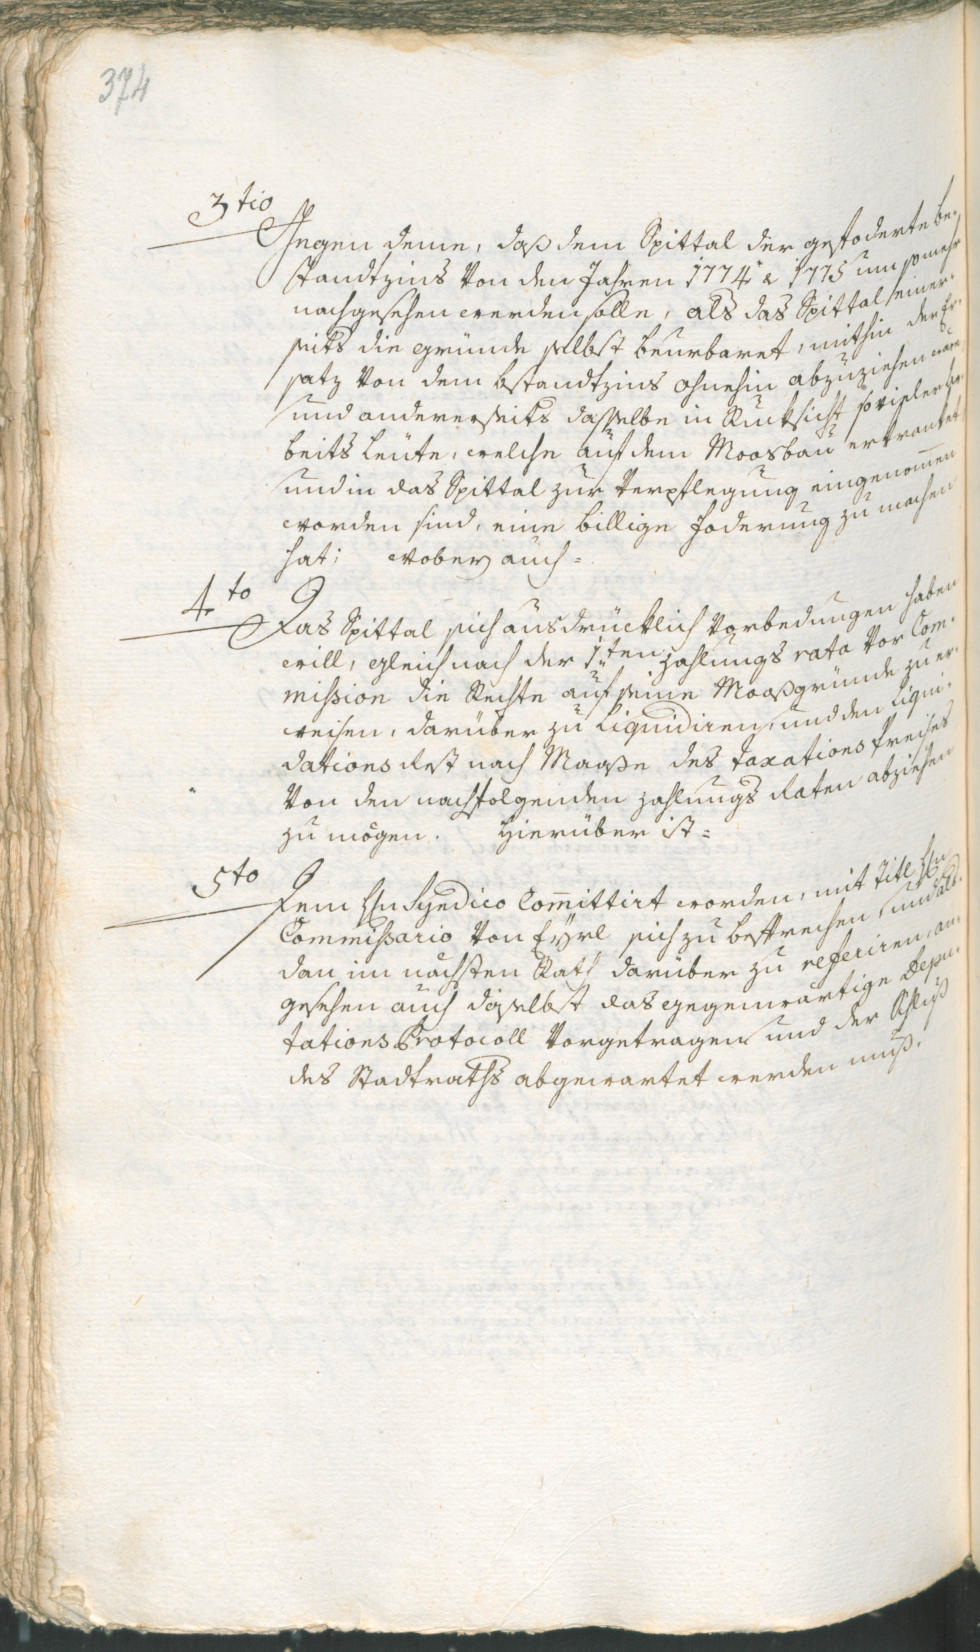 374
3tio
Gegen deme, daß dem Spittal der gefoderte be-
standtzins von den Jahren 1774 & 1775 um so mehr
nachgesehen werden solle, als das Spittal einer-
seits die gründe selbst beurbaret, mithin der Er-
satz von dem bstandtzins ohnehin abzuziehen wäre
und andererseits dasselbe in Rucksicht so vieler Ar-
beits Leüte, welche auf dem Moosbau erkranket
und in das Spittal zur Verpflegung eingenom̄en
worden sind, eine billige foderung zu machen
hat; wobey auch =
4to
Das Spittal sich ausdrücklich vorbedungen haben
will, gleich nach der 1ten zahlungs rata vor Com-
mission die Rechte auf seine Moosgründe zu er-
weisen, darüber zu liquidiren, und den liqui-
dations Rest nach Maaße des taxations Preises
von den nachfolgenden zahlungs Raten abziehen
zu mögen. Hierüber ist =
5to
Dem Hn Syndico Com̄ittirt worden, mit titl Hn
Commissario von Eyrl sich zu besprechen, und als-
dan im nächsten Rath darüber zu referiren, an-
gesehen auch daselbst das gegenwärtige Depu-
tations Protocoll vorgetragen und der Schluß
des Stadtraths abgewartet werden muß.